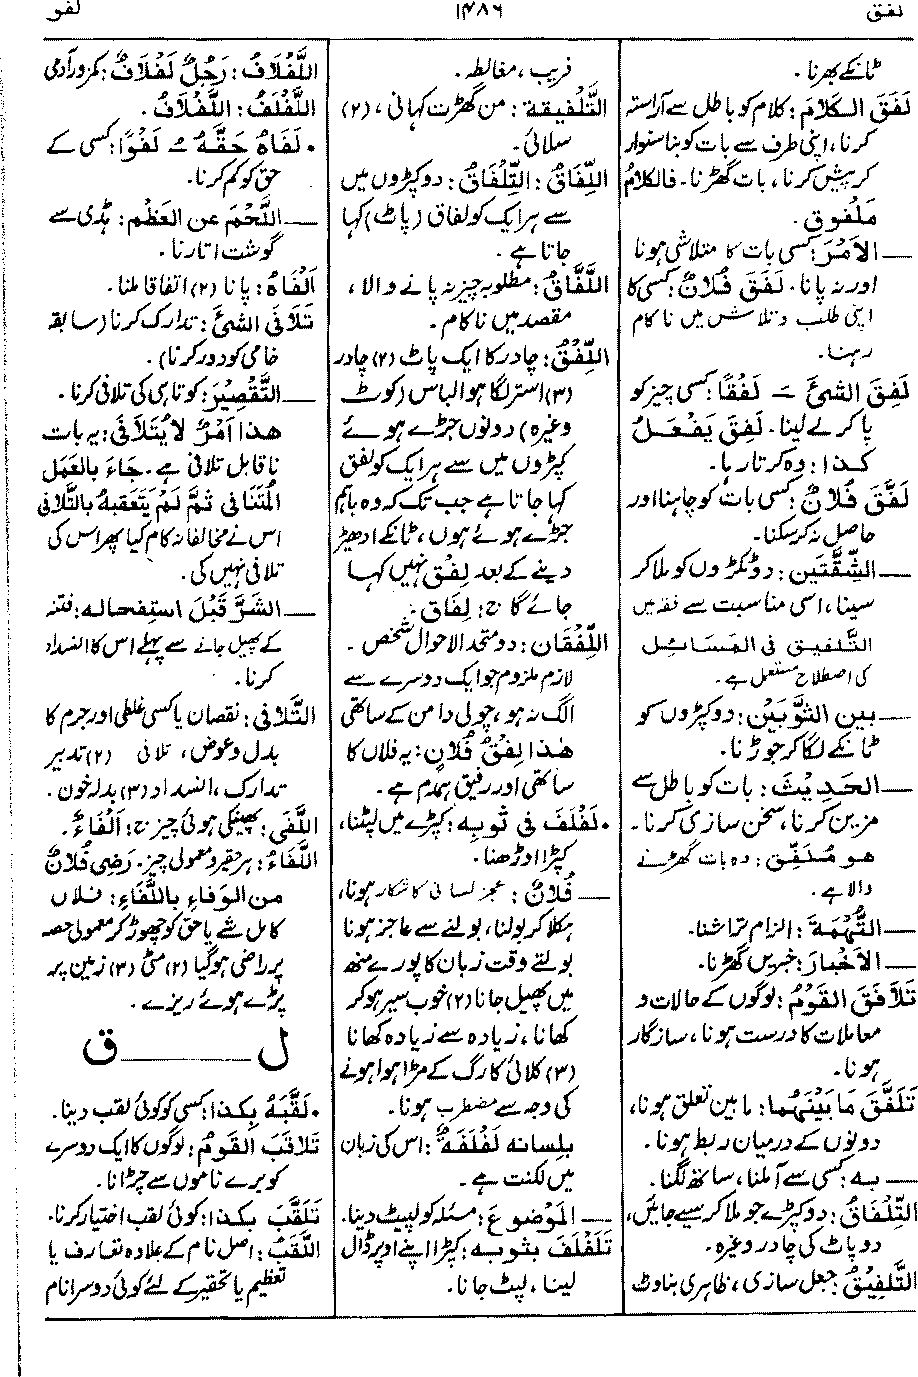 لفق
۱۴۸۶
لفو
ٹانکے بھرنا.
لَفَقَ الکَلَامَ: کلام کو باطل سے آراستہ
کرنا، اپنی طرف سے بات کو بنا سنوار
کر پیش کرنا، بات گھڑنا۔ فالکلامُ
مَلْفُوق.
— الاَمْرَ: کسی بات کا متلاشی ہونا
اور نہ پانا. لَفَقَ فُلَانٌ: کسی کا
اپنی طلب و تلاش میں نا کام
رہنا.
لَفِقَ الشئَ ـَ لَفْقًا: کسی چیز کو
پا کر لے لینا. لَفِقَ يَفْعَلُ
کذا: وہ کرتا رہا.
لَفَّقَ فُلَانٌ: کسی بات کو چاہنا اور
حاصل نہ کر سکنا.
— الشِّقَّتَين: دو ٹکڑوں کو ملا کر
سینا، اسی مناسبت سے فقہ میں
التَّلفيق فی المَسَائِل
کی اصطلاح مستعمل ہے.
— بين الثَّوْبَيْن: دو کپڑوں کو
ٹانکے لگا کر جوڑنا.
— الحَدِيْثَ: بات کو باطل سے
مزین کرنا، سخن سازی کرنا.
هو مُلَفِّق: وہ بات گھڑنے
والا ہے.
— التُّهْمَةَ: الزام تراشنا.
— الاَخْبَارَ: خبریں گھڑنا.
تَلَافَقَ القَوْمُ: لوگوں کے حالات و
معاملات کا درست ہونا، سازگار
ہونا.
تَلَفَّقَ مَا بَيْنَهُما: مابین تعلق ہونا،
دونوں کے درمیان ربط ہونا.
— بہ: کسی سے آملنا، ساتھ لگنا.
التِّلْفَاقُ: دو کپڑے جو ملا کر سیے جائیں،
دوپاٹ کی چادر وغیرہ.
التَّلفِيْقُ: جعل سازی، ظاہری بناوٹ
فریب، مغالطہ.
التَّلْفِيقة: من گھڑت کہانی، (۲)
سلائی.
اللِّفَاقُ: التِّلْفَاقُ: دو کپڑوں میں
سے ہر ایک کو لفاق (پاٹ) کہا
جاتا ہے.
اللَّفَّاقُ: مطلوبہ چیز نہ پانے والا،
مقصد میں ناکام.
اللِّفْقُ: چادر کا ایک پاٹ (۲) چادر
(۳) استر لگا ہوا لباس (کوٹ
وغیرہ) دونوں جڑے ہوئے
کپڑوں میں سے ہر ایک کو لفق
کہا جاتا ہے جب تک کہ وہ باہم
جڑے ہوئے ہوں، ٹانکے ادھیڑ
دینے کے بعد لِفْق نہیں کہا
جائے گا ج: لِفَاق.
اللِّفْقَان: دو متحد الاحوال شخص.
لازم ملزوم جو ایک دوسرے سے
الگ نہ ہو، چولی دامن کے ساتھی
هٰذا لِفْقُ فُلَانٍ: یہ فلاں کا
ساتھی اور رفیق ہمدم ہے.
• لَفْلَفَ فی ثَوبِہ: کپڑے میں لپٹنا،
کپڑا اوڑھنا.
— فُلَانٌ: عجز لسانی کا شکار ہونا،
ہکلا کر بولنا، بولنے سے عاجز ہونا
بولتے وقت زبان کا پورے منھ
میں پھیل جانا (۲) خوب سیر ہو کر
کھانا، زیادہ سے زیادہ کھانا
(۳) کلائی کا رگ کے مڑا ہوا ہونے
کی وجہ سے مضطرب ہونا.
بلِسانہ لَفْلَفَةٌ: اس کی زبان
میں لکنت ہے.
— المَوْضوعَ: مسئلہ کو لپیٹ دینا.
تَلَفْلَفَ بثوبہ: کپڑا اپنے اوپر ڈال
لینا، لپٹ جانا.
اللَّفْلَافُ: رَجُلٌ لَفْلَافٌ: کمزور آدمی
اللَّفْلَفُ: اللَّفْلَافُ.
• لَفَاهُ حَقَّهٗ ـُ لَفْوًا: کسی کے
حق کو کم کرنا.
— اللَّحْمَ عن العَظْم: ہڈی سے
گوشت اتارنا.
اَلْفَاهُ: پانا (۲) اتفاقا ملنا.
تَلَافَی الشئَ: تدارک کرنا (سابقہ
خامی کو دور کرنا).
— التَّقْصِيْرَ: کوتاہی کی تلافی کرنا.
هذا اَمْرٌ لَا يُتَلَافٰی: یہ بات
ناقابل تلافی ہے. جَاءَ بالعَمَل
المُتَنَافِی ثُمَّ لَمْ يَتَعَقبهُ بالتَّلافی
اس نے مخالفانہ کام کیا پھر اس کی
تلافی نہیں کی.
— الشَرَّ قَبْلَ استِفحالہ: فتنہ
کے پھیل جانے سے پہلے اس کا انسداد
کرنا.
التَّلَافی: نقصان یا کسی غلطی اور جرم کا
بدل و عوض، تلافی (۲) تدبیر
تدارک، انسداد (۳) بدلہ خون.
اللَّفٰی: پھینکی ہوئی چیز ج: اَلْفَاءٌ.
اللَّفَاءُ: ہر حقیر و معمولی چیز. رَضِیَ فُلَانٌ
من الوَفَاءِ باللَّفَاءِ: فلاں
کامل شے یا حق کو چھوڑ کر معمولی حصہ
پر راضی ہو گیا (۲) مٹی (۳) زمین پر
پڑے ہوئے ریزے.
ل — ق
• لَقَّبَهُ بِکذا: کسی کو کوئی لقب دینا.
تَلَاقَبَ القَومُ: لوگوں کا ایک دوسرے
کو برے ناموں سے چڑانا.
تَلَقَّبَ بکذا: کوئی لقب اختیار کرنا.
اللَّقَبُ: اصل نام کے علاوہ تعارف یا
تعظیم یا تحقیر کے لئے کوئی دوسرا نام